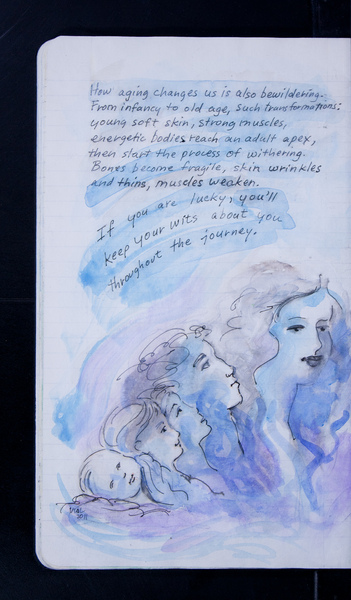 How aging changes us is also bewildering.
From infancy to old age, such transformations:
young soft skin, strong muscles,
energetic bodies reach an adult apex,
then start the process of withering.
Bones become fragile, skin wrinkles
and thins, muscles weaken.
If you are lucky, you'll
keep your wits about you
throughout the journey.